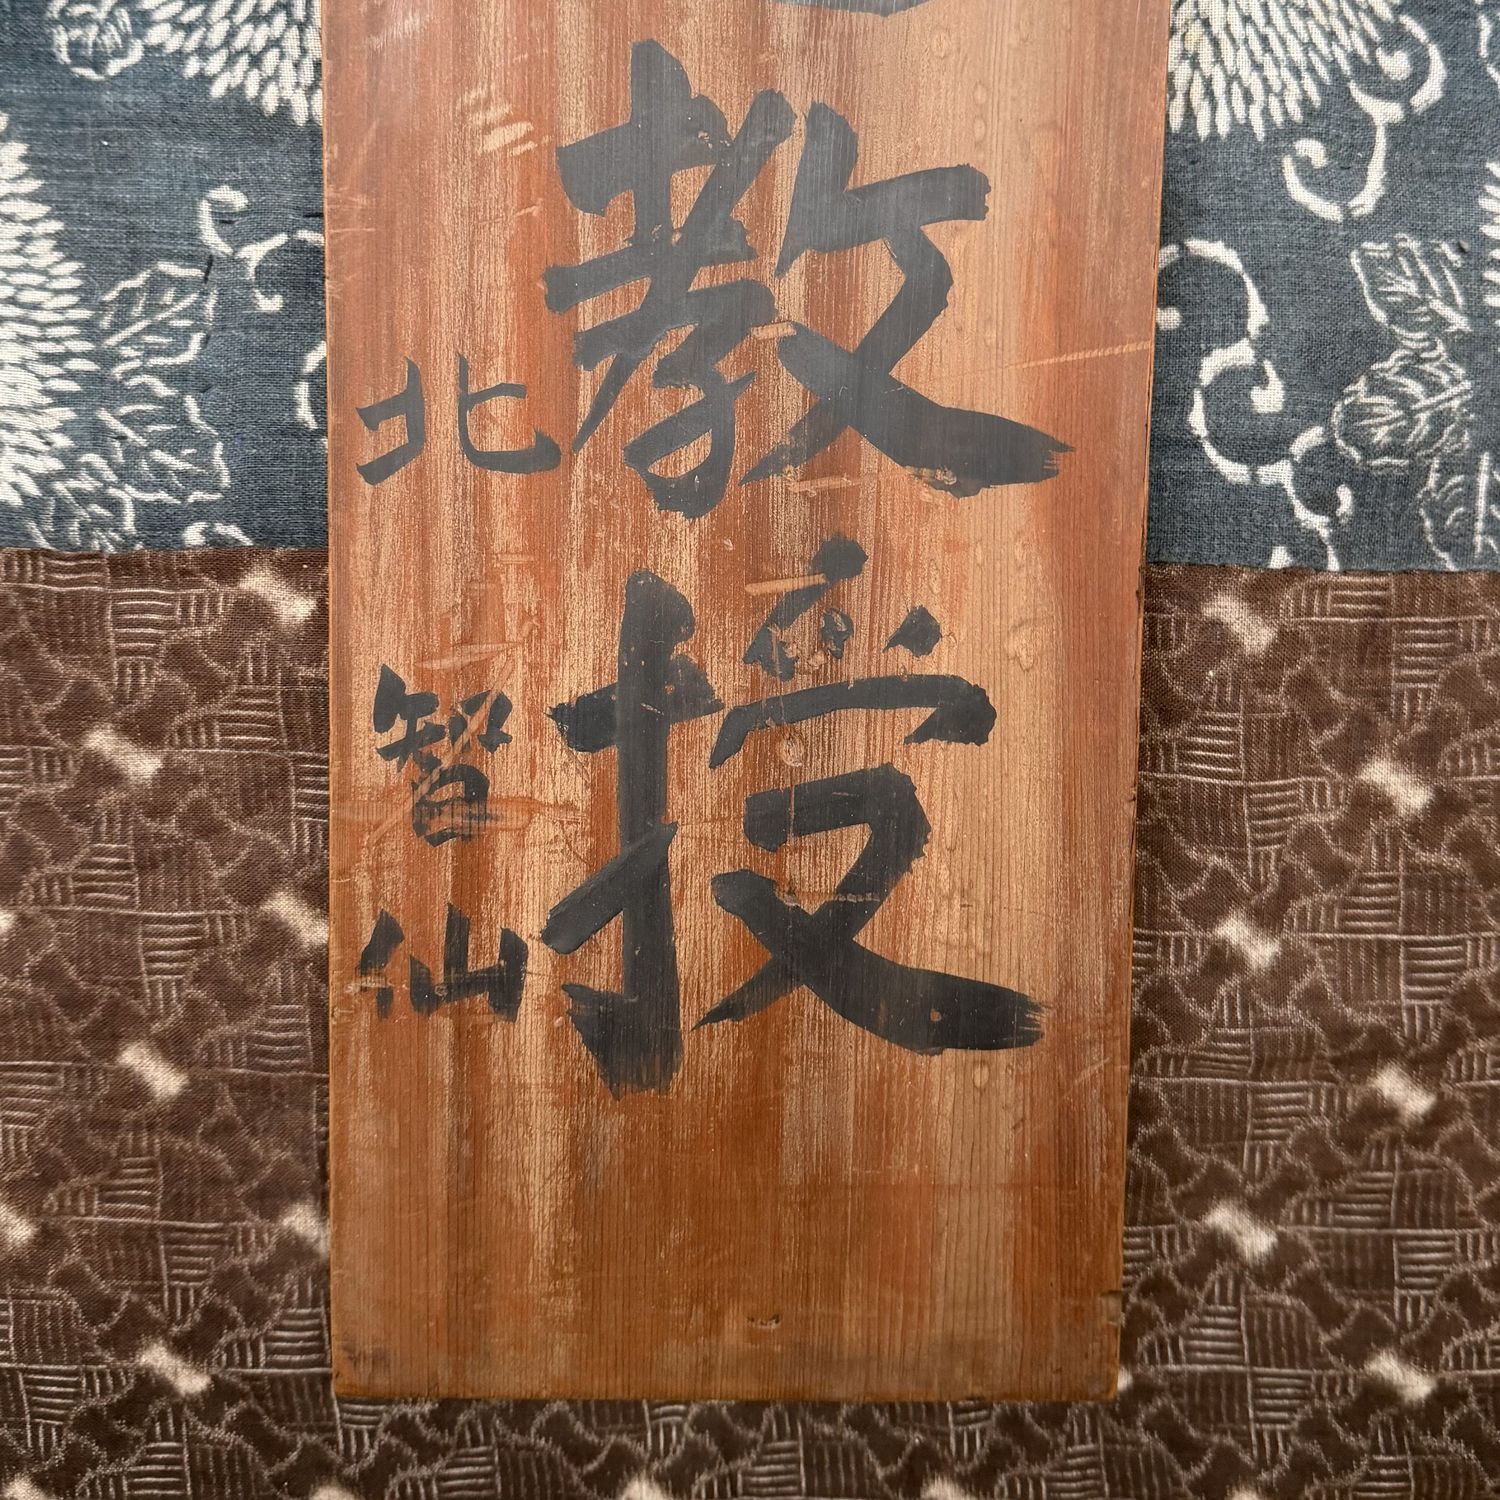 教授
北智仙